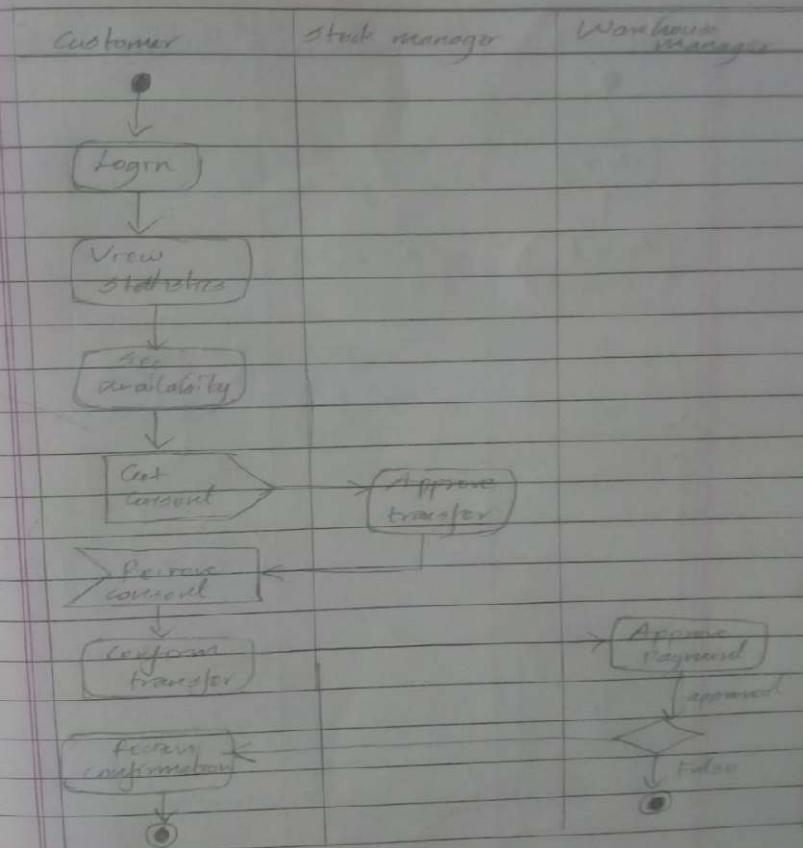 Customer
Stock manager
Warehouse
manager
Login
View
statistics
See
availabity
Get
consent
Approve
transfer
consent
Conform
transfer
Approve
Payment
approved
confirmation